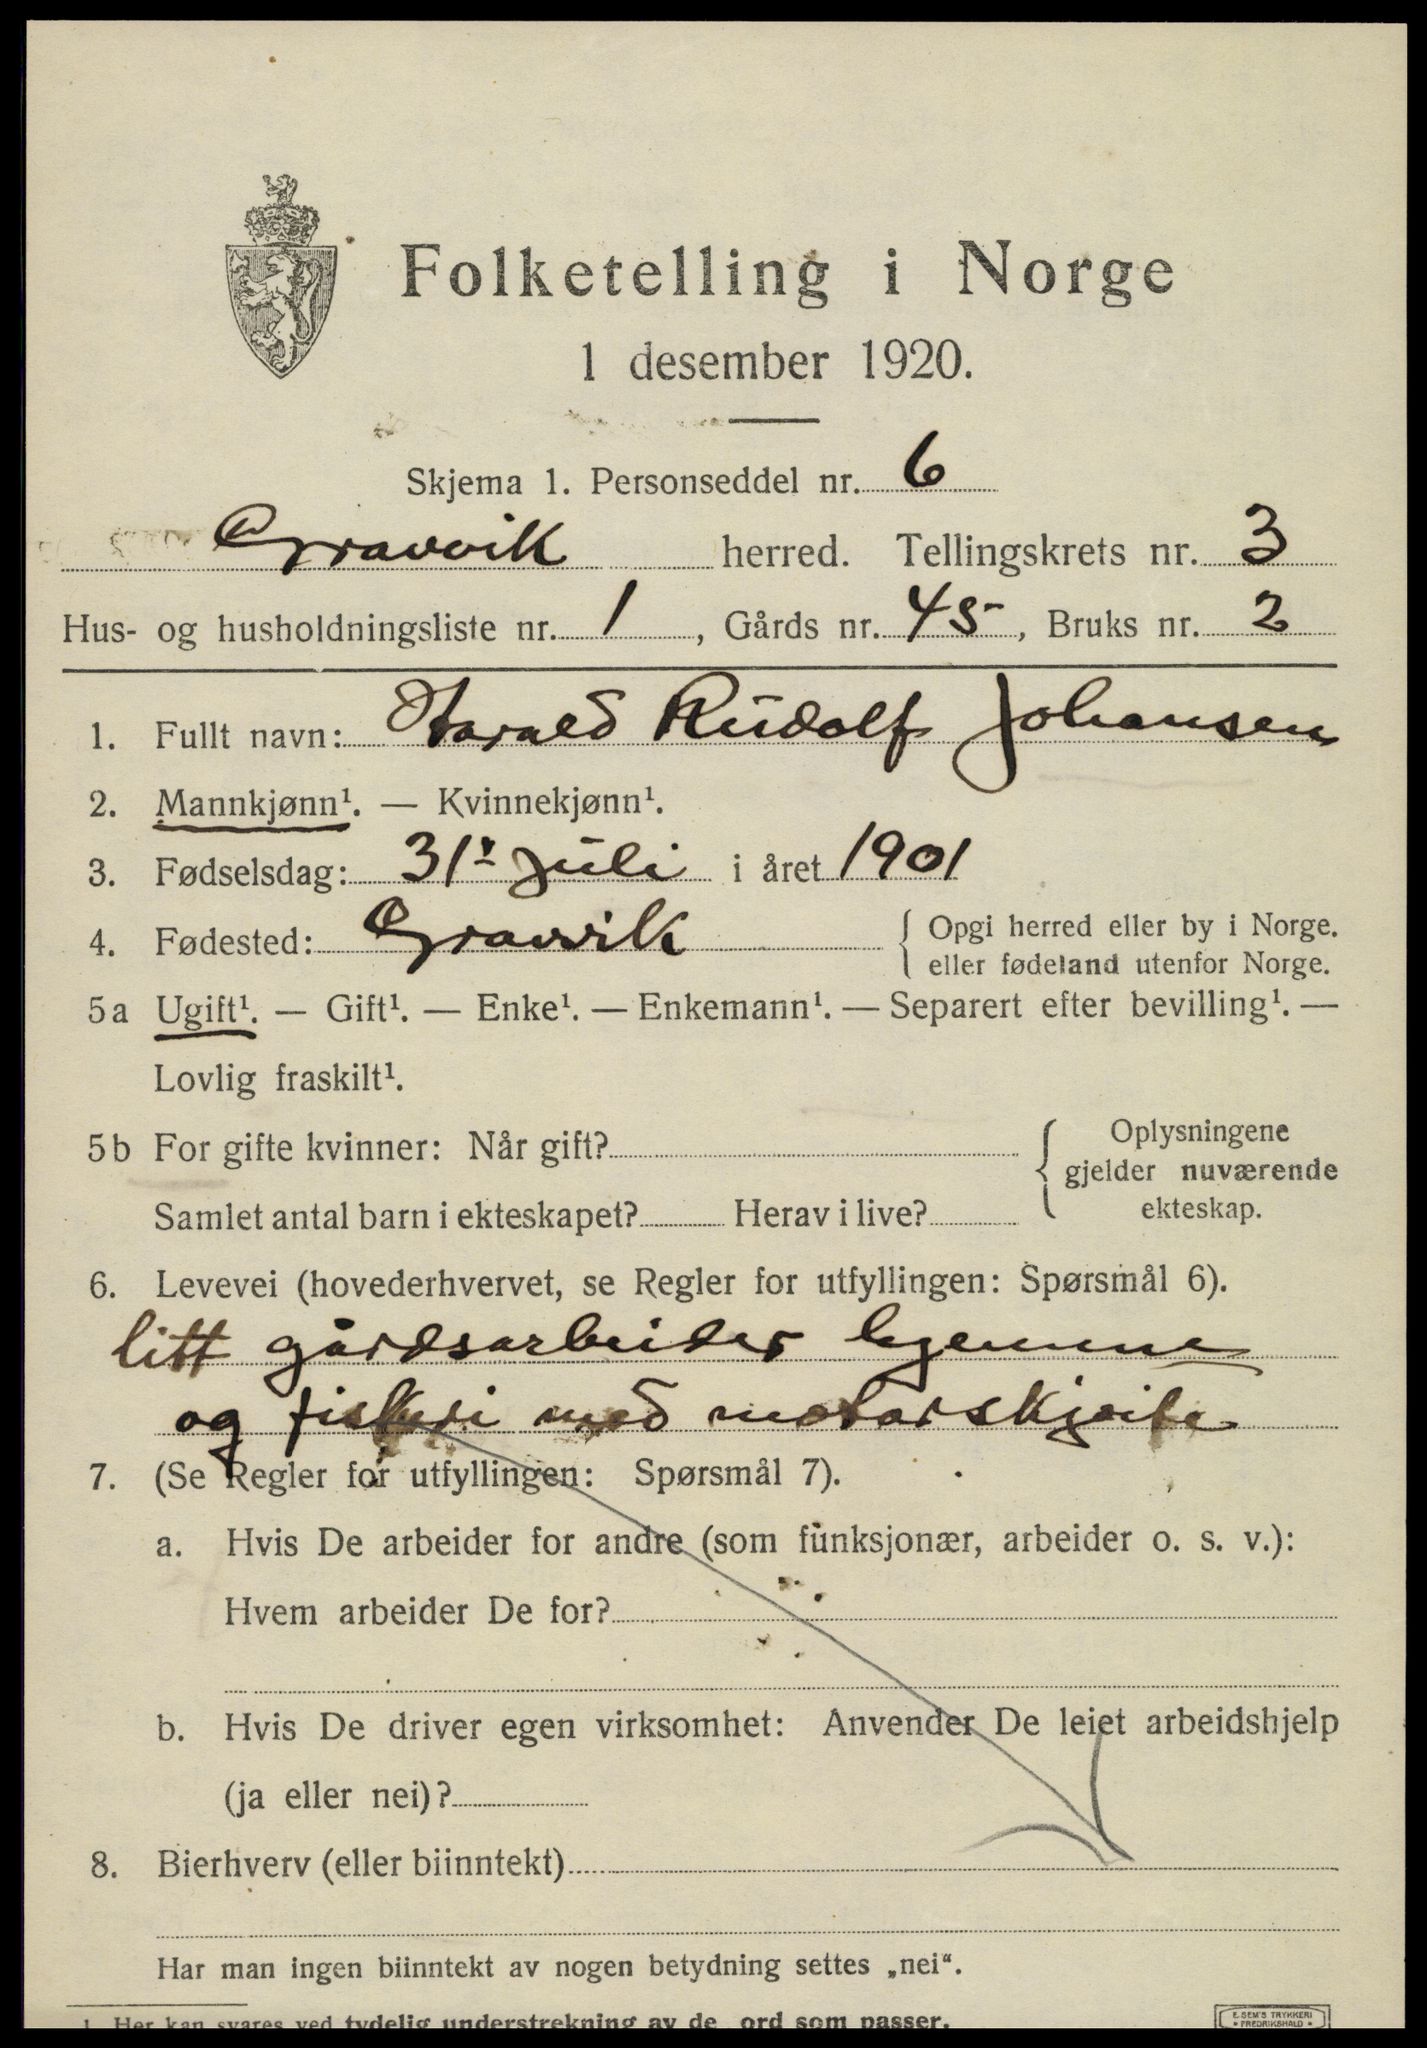 Folketelling i Norge
1 desember 1920.
Skjema 1. Personseddel nr. 6
Gravvik herred. Tellingskrets nr. 3
Hus- og husholdningsliste nr. 1, Gårds nr. 45, Bruks nr. 2
1. Fullt navn: Harald Rudolf Johansen
2. Mannkjønn¹. — Kvinnekjønn¹.
3. Fødselsdag: 31' Juli i året 1901
4. Fødested: Gravvik { Opgi herred eller by i Norge.
eller fødeland utenfor Norge.
5a Ugift¹. — Gift¹. — Enke¹. — Enkemann¹. — Separert efter bevilling¹. —
Lovlig fraskilt¹.
5b For gifte kvinner: Når gift? { Oplysningene
gjelder nuværende
Samlet antal barn i ekteskapet? Herav i live? ekteskap.
6. Levevei (hovederhvervet, se Regler for utfyllingen: Spørsmål 6).
litt gårdsarbeider hjemme
og fiskeri med motorskjøite
7. (Se Regler for utfyllingen: Spørsmål 7).
a. Hvis De arbeider for andre (som funksjonær, arbeider o. s. v.):
Hvem arbeider De for?
b. Hvis De driver egen virksomhet: Anvender De leiet arbeidshjelp
(ja eller nei)?
8. Bierhverv (eller biinntekt)
Har man ingen biinntekt av nogen betydning settes „nei“.
1. Her kan svares ved tydelig understrekning av de ord som passer.
E. SEM'S TRYKKERI
• FREDRIKSHALD •